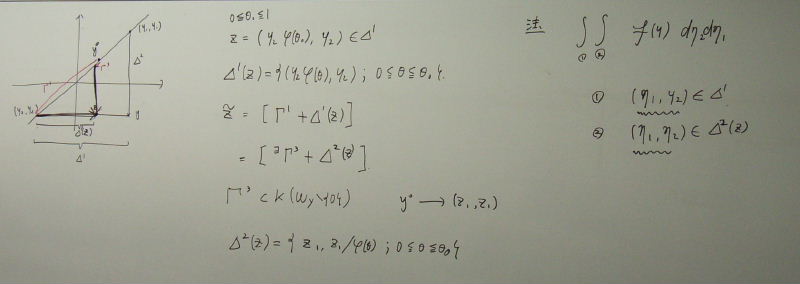 (y₁, y₁)
y*
Δ²
Γ'
Γ'
(y₂, y₂)
y
Δ'(z)
Δ'
0≦θ₀≦1
z = (y₂ φ(θ₀), y₂) ∈ Δ'
Δ'(z) = {(y₂ φ(θ), y₂) ; 0≦θ≦θ₀}.
z̃ = [Γ' + Δ'(z)]
= [∃Γ³ + Δ²(z)].
y* → (z₁, z₁)
Δ²(z) = { z₁, z₁/φ(θ) ; 0≦θ≦θ₀}
注 ∫∫ f(y) dη₂dη₁
① ②
① (η₁, y₂) ∈ Δ'
② (η₁, η₂) ∈ Δ²(z)